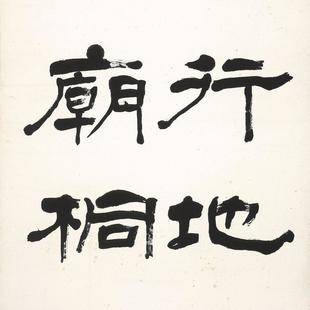 行地
廟桐